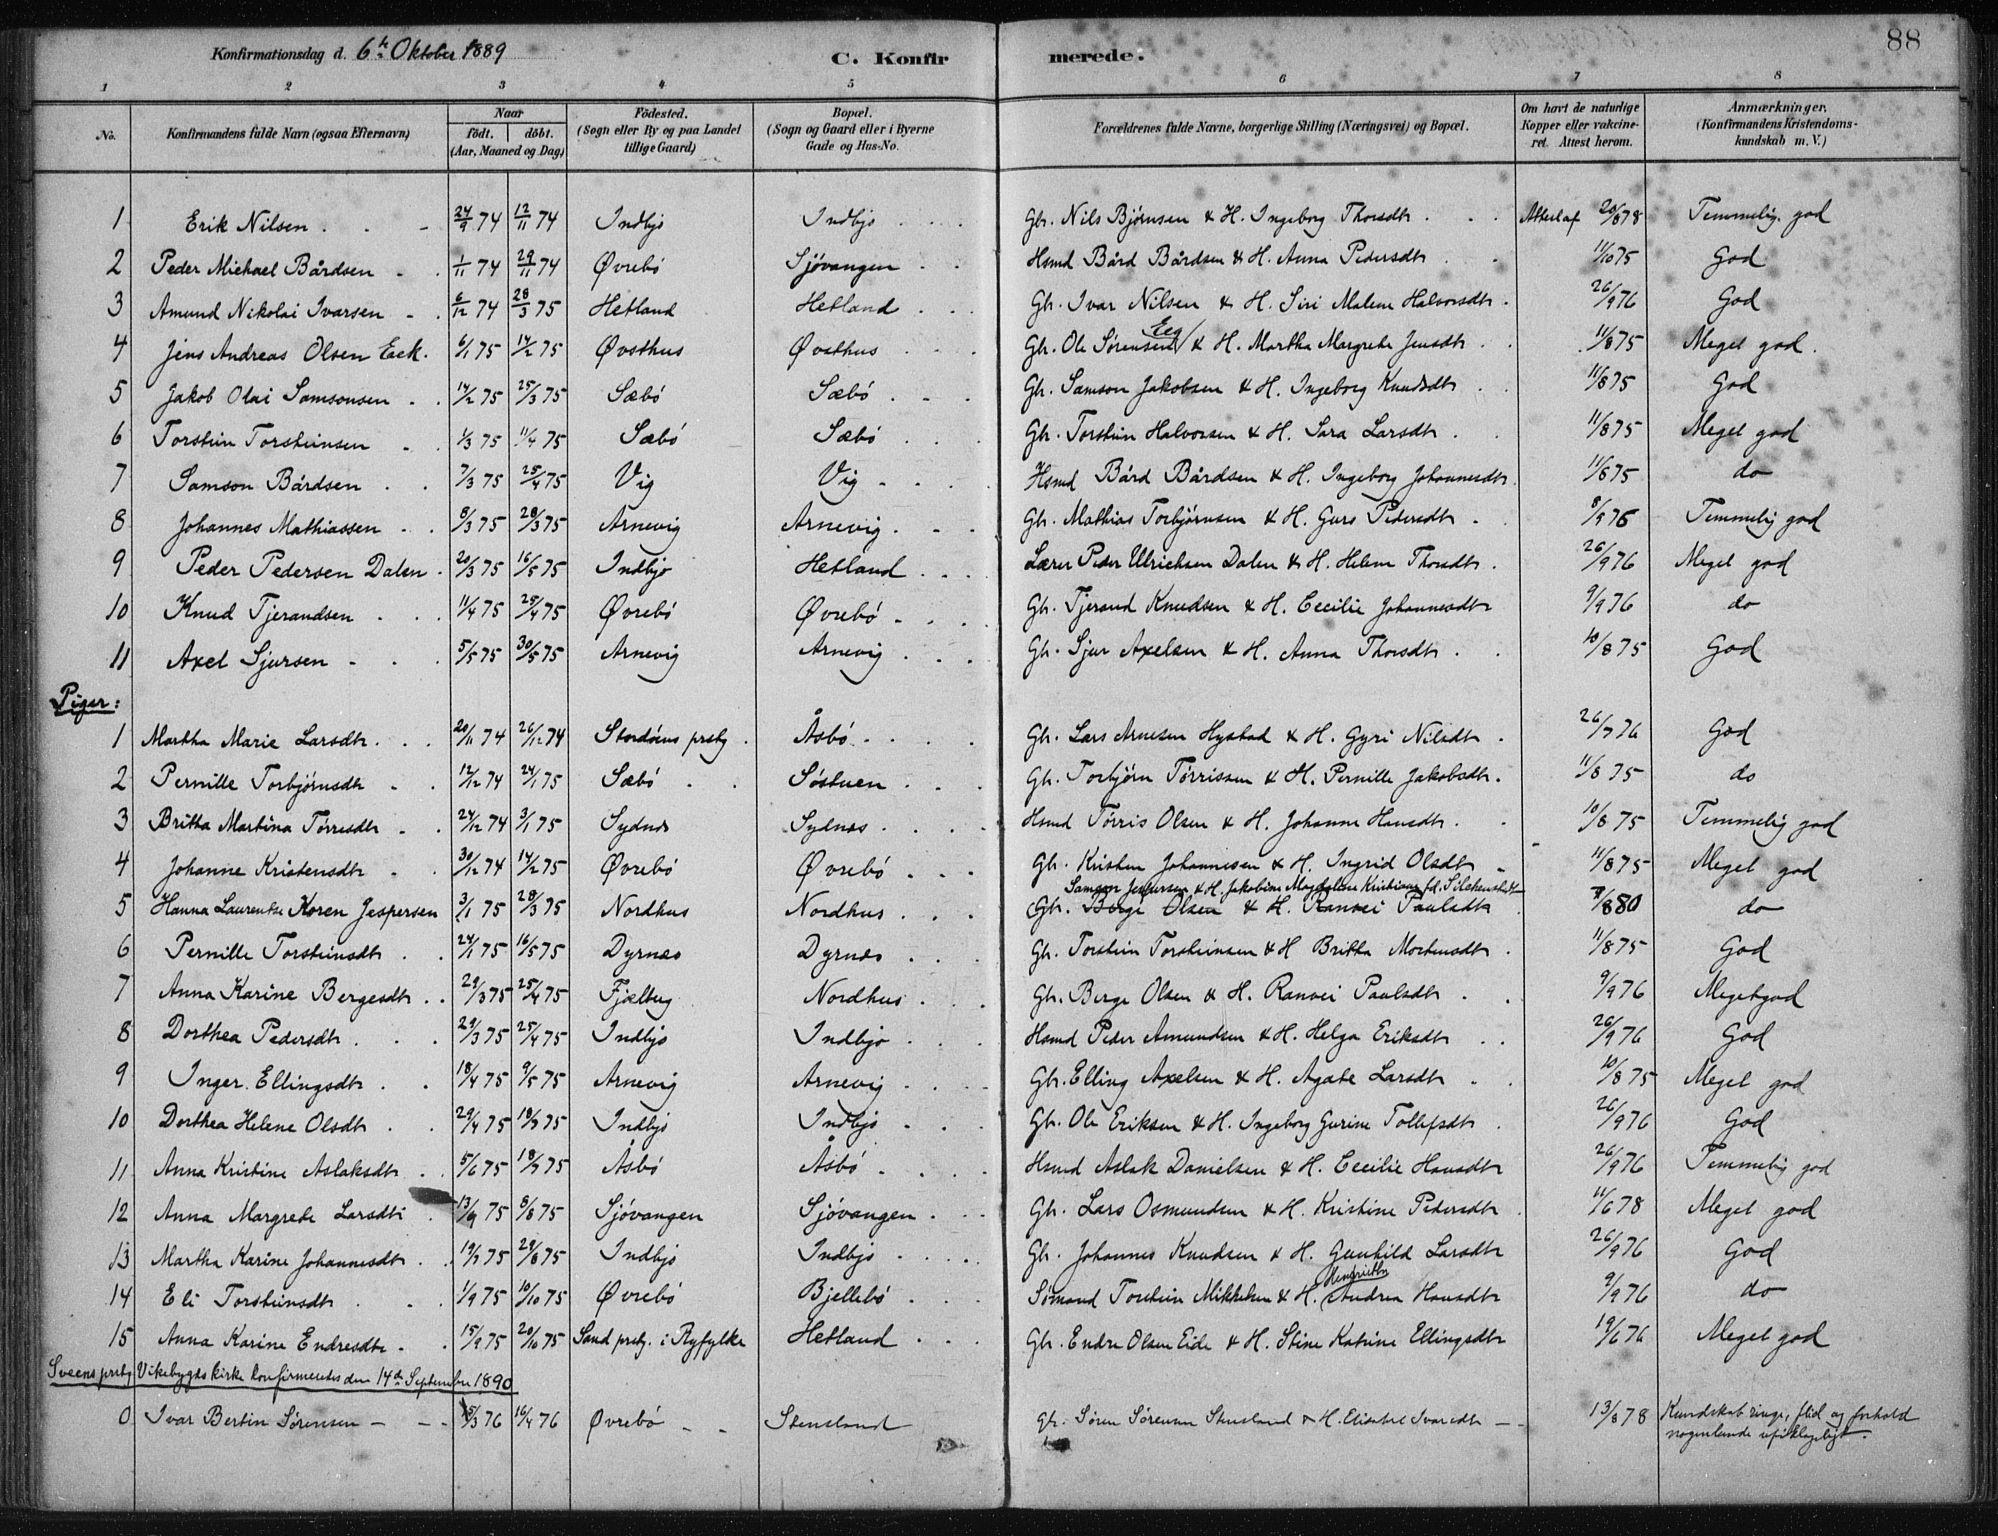 88
Konfirmationsdag d. 6te Oktober 1889 C. Konfirmerede.
1 2 3 4 5 6 7 8
No. Konfirmandens fulde Navn (ogsaa Efternavn) Naar födt. döbt. (Aar, Maaned og Dag) Födested. (Sogn eller By og paa Landet tillige Gaard) Bopæl. (Sogn og Gaard eller i Byerne Gade og Hus-No. Forældrenes fulde Navne, borgerlige Stilling (Næringsvei) og Bopæl. Om havt de naturlige Kopper eller vakcineret. Attest herom. Anmærkninger. (Konfirmandens Kristendomskundskab m. V.)
1 Erik Nilsen 24/9 74 12/11 74 Indbjo Indbjo Gbr. Nils Bjørnsen & H. Ingeborg Thorsdtr Attest af 20/8 78 Temmelig god
2 Peder Michael Bårdsen 1/11 74 29/11 74 Øvrebö Sjövangen Hsmd Bård Bårdsen & H. Anna Pedersdtr 11/10 75 God
3 Amund Nikolai Ivarsen 6/12 74 28/3 75 Hetland Hetland Gbr. Ivar Nilsen & H. Siri Malene Halvorsdtr 26/9 76 God
4 Jens Andreas Olsen Eeck 6/1 75 14/2 75 Øvsthus Øvsthus Gbr. Ole Sørensen Eeg & H. Martha Margrete Jensdtr 11/8 75 Meget god
5 Jakob Olai Samsonsen 14/2 75 25/3 75 Sæbö Sæbö Gbr. Samson Jakobsen & H. Ingeborg Knudsdtr 11/8 75 God
6 Torstein Torsteinsen 1/3 75 11/4 75 Sæbö Sæbö Gbr. Torstein Halvorsen & H. Sara Larsdtr 11/8 75 Meget god
7 Samson Bårdsen 7/3 75 25/4 75 Vig Vig Hsmd Bård Bårdsen & H. Ingeborg Johannesdtr 11/8 75 do
8 Johannes Mathiassen 8/3 75 28/3 75 Arnevig Arnevig Gbr. Mathias Torbjørnsen & H. Guro Pedersdtr 8/9 76 Temmelig god
9 Peder Pedersen Dalen 20/3 75 16/5 75 Indbjo Hetland Lærer Peder Ulrichsen Dalen & H. Helene Thorsdtr 26/9 76 Meget god
10 Knud Tjerandsen 11/4 75 25/4 75 Øvrebö Øvrebö Gbr. Tjerand Knudsen & H. Cecilie Johannesdtr 9/9 76 do
11 Axel Sjursen 5/5 75 30/5 75 Arnevig Arnevig Gbr. Sjur Axelsen & H. Anna Thorsdtr 10/8 75 God
Piger:
1 Martha Marie Larsdtr 20/11 74 26/12 74 Stordöens prstg. Åsbö Gbr. Lars Arnesen Hystad & H. Gyri Nilsdtr 26/7 76 God
2 Pernille Torbjørnsdtr 12/12 74 24/1 75 Sæbö Söstuen Gbr. Torbjørn Tørrissen & H. Pernille Jakobsdtr 11/8 75 do
3 Britha Martina Törresdtr 24/12 74 3/1 75 Sydnes Sydnes Hsmd Törris Olsen & H. Johanne Hansdtr 10/8 75 Temmelig god
4 Johanne Kristensdtr 30/12 74 14/2 75 Øvrebö Øvrebö Gbr. Kristen Johannesen & H. Ingrid Olsdtr 11/8 75 Meget god
Samson Jespersen & H. Jakobine Magdalene Kristiane fd.
5 Hanna Laurentse Koren Jespersen 3/1 75 28/3 75 Nordhus Nordhus Gbr. Berge Olsen & H. Ranvei Paulsdtr 7/8 80 do
6 Pernille Torsteinsdtr 24/1 75 16/5 75 Dyrnes Dyrnes Gbr. Torstein Torsteinsen & H Britha Mortensdtr 11/8 75 God
7 Anna Karine Bergesdtr 29/3 75 25/4 75 Fjelberg Nordhus Gbr. Berge Olsen & H. Ranvei Paulsdtr 9/9 76 Meget god
8 Dorthea Pedersdtr 29/3 75 25/4 75 Indbjo Indbjo Hsmd Peder Amundsen & H. Helga Eriksdtr 26/9 76 God
9 Inger Ellingsdtr 18/4 75 9/5 75 Arnevig Arnevig Gbr. Elling Axelsen & H. Agate Larsdtr 10/8 75 Meget god
10 Dorthea Helene Olsdtr 29/4 75 18/7 75 Indbjo Indbjo Gbr. Ole Eriksen & H. Ingeborg Gurine Tollefsdtr 26/9 76 God
11 Anna Kristine Aslaksdtr 5/6 75 18/7 75 Åsbö Åsbö Hsmd Aslak Danielsen & H. Cecilie Hansdtr 26/9 76 Temmelig god
12 Anna Margrete Larsdtr 13/6 75 8/8 75 Sjövangen Sjövangen Gbr. Lars Osmundsen & H. Kristine Pedersdtr 11/6 78 Meget god
13 Martha Karine Johannesdtr 19/7 75 29/8 75 Indbjo Indbjo Gbr. Johannes Knudsen & H. Gunhild Larsdtr 26/9 76 God
14 Eli Torsteinsdtr 1/9 75 10/10 75 Øvrebö Bjellebö Sömand Torstein Mikkelsen & H. Henriette Andrea Hansdtr 9/9 76 do
15 Anna Karine Endresdtr 15/9 75 20/10 75 Sand prstg. i Ryfylke Hetland Gbr. Endre Olsen Eide & H. Stine Katrine Ellingsdtr 19/6 76 Meget god
Sveens prstg Vikebygds kirke konfirmeretes den 14de September 1890
0 Ivar Bertin Sörensen 15/3 76 16/4 76 Øvrebö Stensland Gbr. Sören Sörensen Stensland & H. Elisabet Ivarsdtr 13/8 78 Kundskab ringe, flid og forhold
nogenlunde upåklageligt.